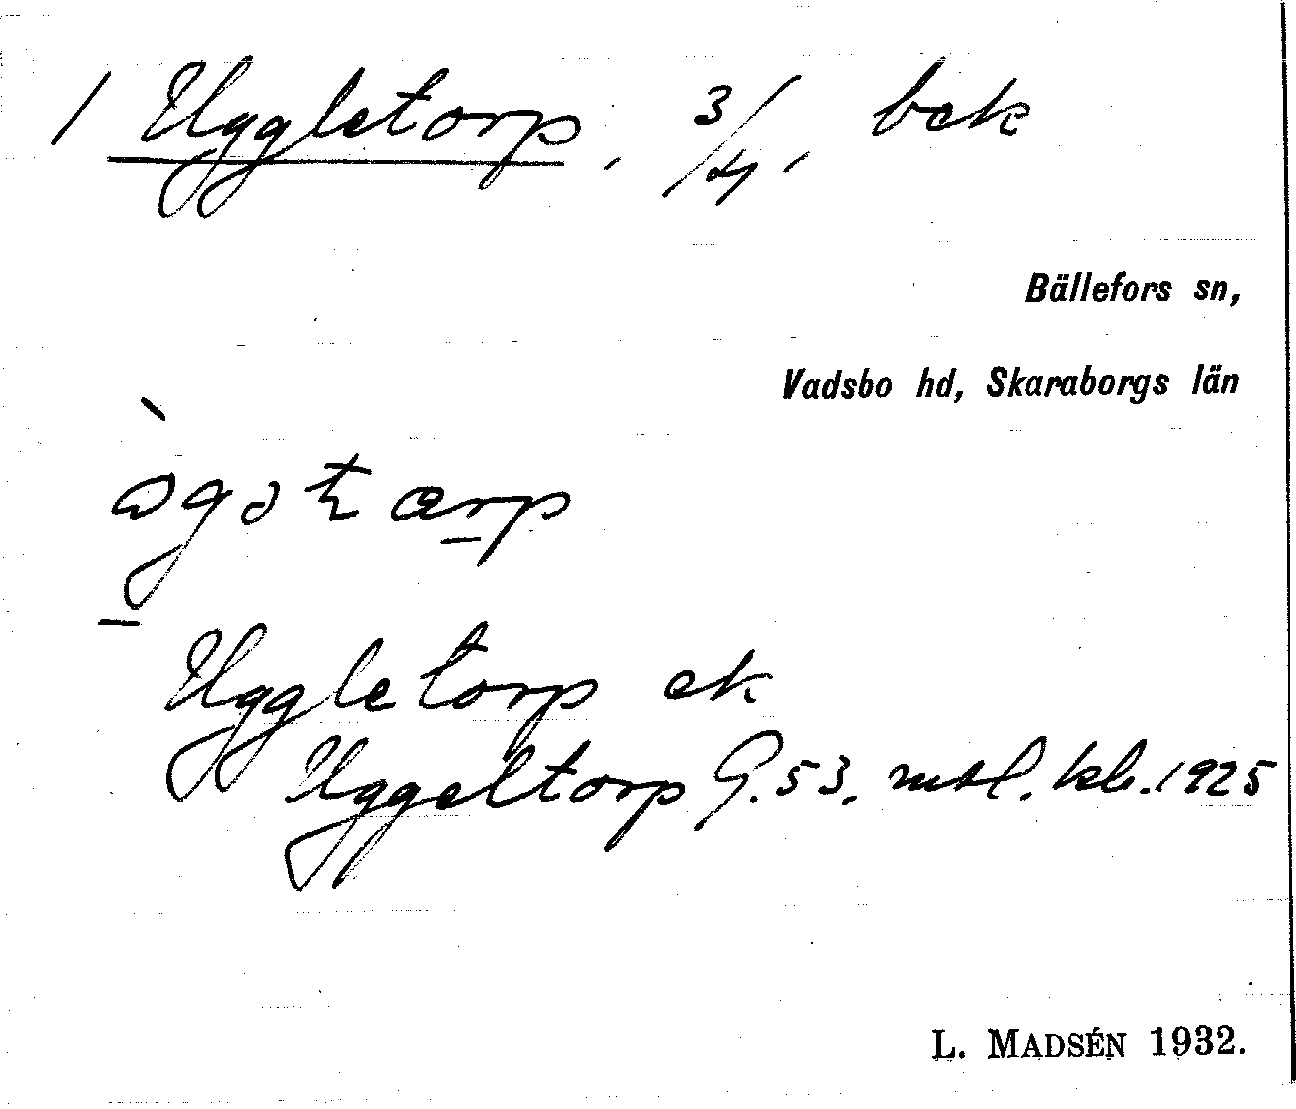 1 Uggletorp, 3/4, bek
Bällefors sn,
Vadsbo hd, Skaraborgs län
Uggletorp ek
Uggeltorp G. 53. mtl. kb. 1925
L. MADSÉN 1932.